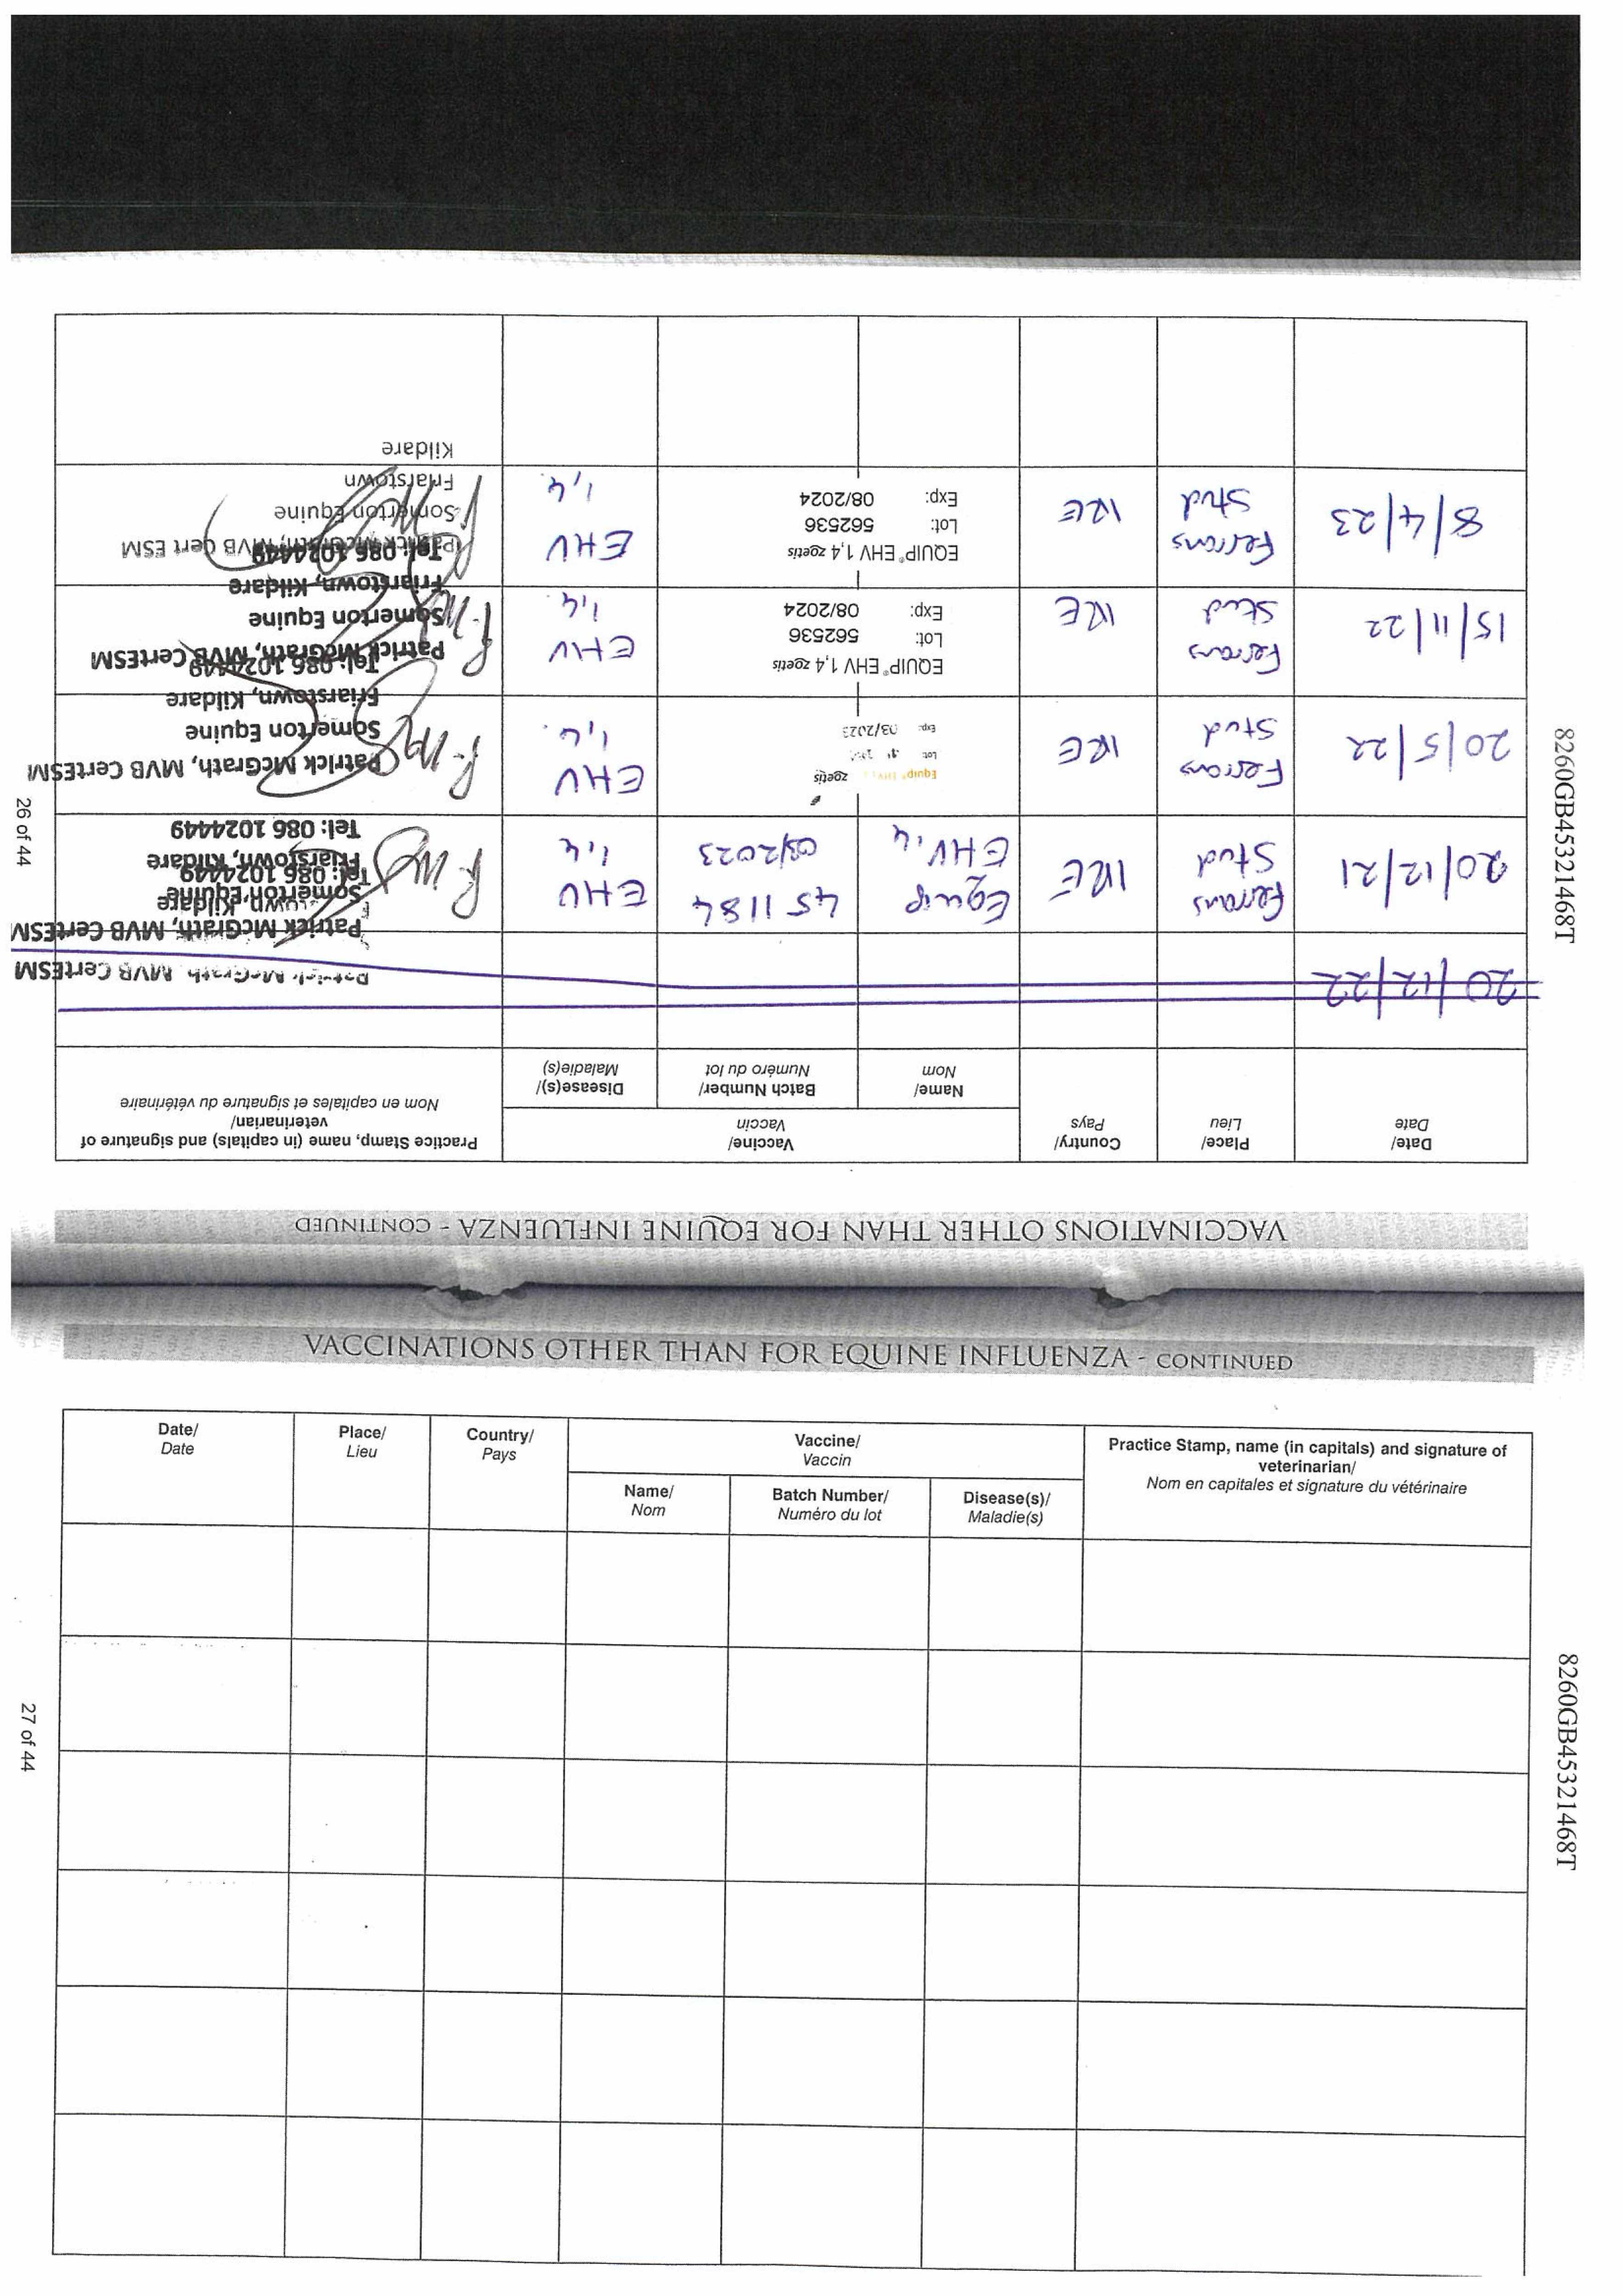 VACCINATIONS OTHER THAN FOR EQUINE INFLUENZA - CONTINUED
Date/
Date
Place/
Lieu
Country/
Pays
Vaccine/
Vaccin
Name/
Nom
Batch Number/
Numéro du lot
Disease(s)/
Maladie(s)
Practice Stamp, name (in capitals) and signature of
veterinarian/
Nom en capitales et signature du vétérinaire
20/12/22
Patrick McGrath, MVB CertESM
20/12/21
Ferrans
Stud
IRE
Equip
EHV1,4
451184
03/2023
EHV
1,4
Patrick McGrath, MVB CertESM
Somerton Equine
Friarstown, Kildare
Tel: 086 1024449
Tel: 086 1024449
20/5/22
Ferrans
Stud
IRE
Equip
zoetis
Lot:
Exp: 03/2023
EHV
1,4
Patrick McGrath, MVB CertESM
Somerton Equine
Friarstown, Kildare
Tel: 086 1024449
15/11/22
Ferrans
Stud
IRE
EQUIP® EHV 1,4 zoetis
Lot: 562536
Exp: 08/2024
EHV
1,4
Patrick McGrath, MVB CertESM
Somerton Equine
Friarstown, Kildare
Tel: 086 1024449
8/4/23
Ferrans
Stud
IRE
EQUIP® EHV 1,4 zoetis
Lot: 562536
Exp: 08/2024
EHV
1,4
Patrick McGrath, MVB Cert ESM
Somerton Equine
Friarstown
Kildare
26 of 44
8260GB45321468T
VACCINATIONS OTHER THAN FOR EQUINE INFLUENZA - CONTINUED
Date/
Date
Place/
Lieu
Country/
Pays
Vaccine/
Vaccin
Name/
Nom
Batch Number/
Numéro du lot
Disease(s)/
Maladie(s)
Practice Stamp, name (in capitals) and signature of
veterinarian/
Nom en capitales et signature du vétérinaire
27 of 44
8260GB45321468T